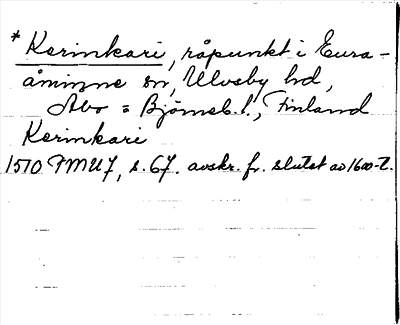 * Kerinkari, råpunkt i Eura-
åminne sn, Ulvsby hd,
Åbo = Björneb. l., Finland
Kerinkari
1510 FMU 7, s. 67. avskr. fr. slutet av 1600-t.